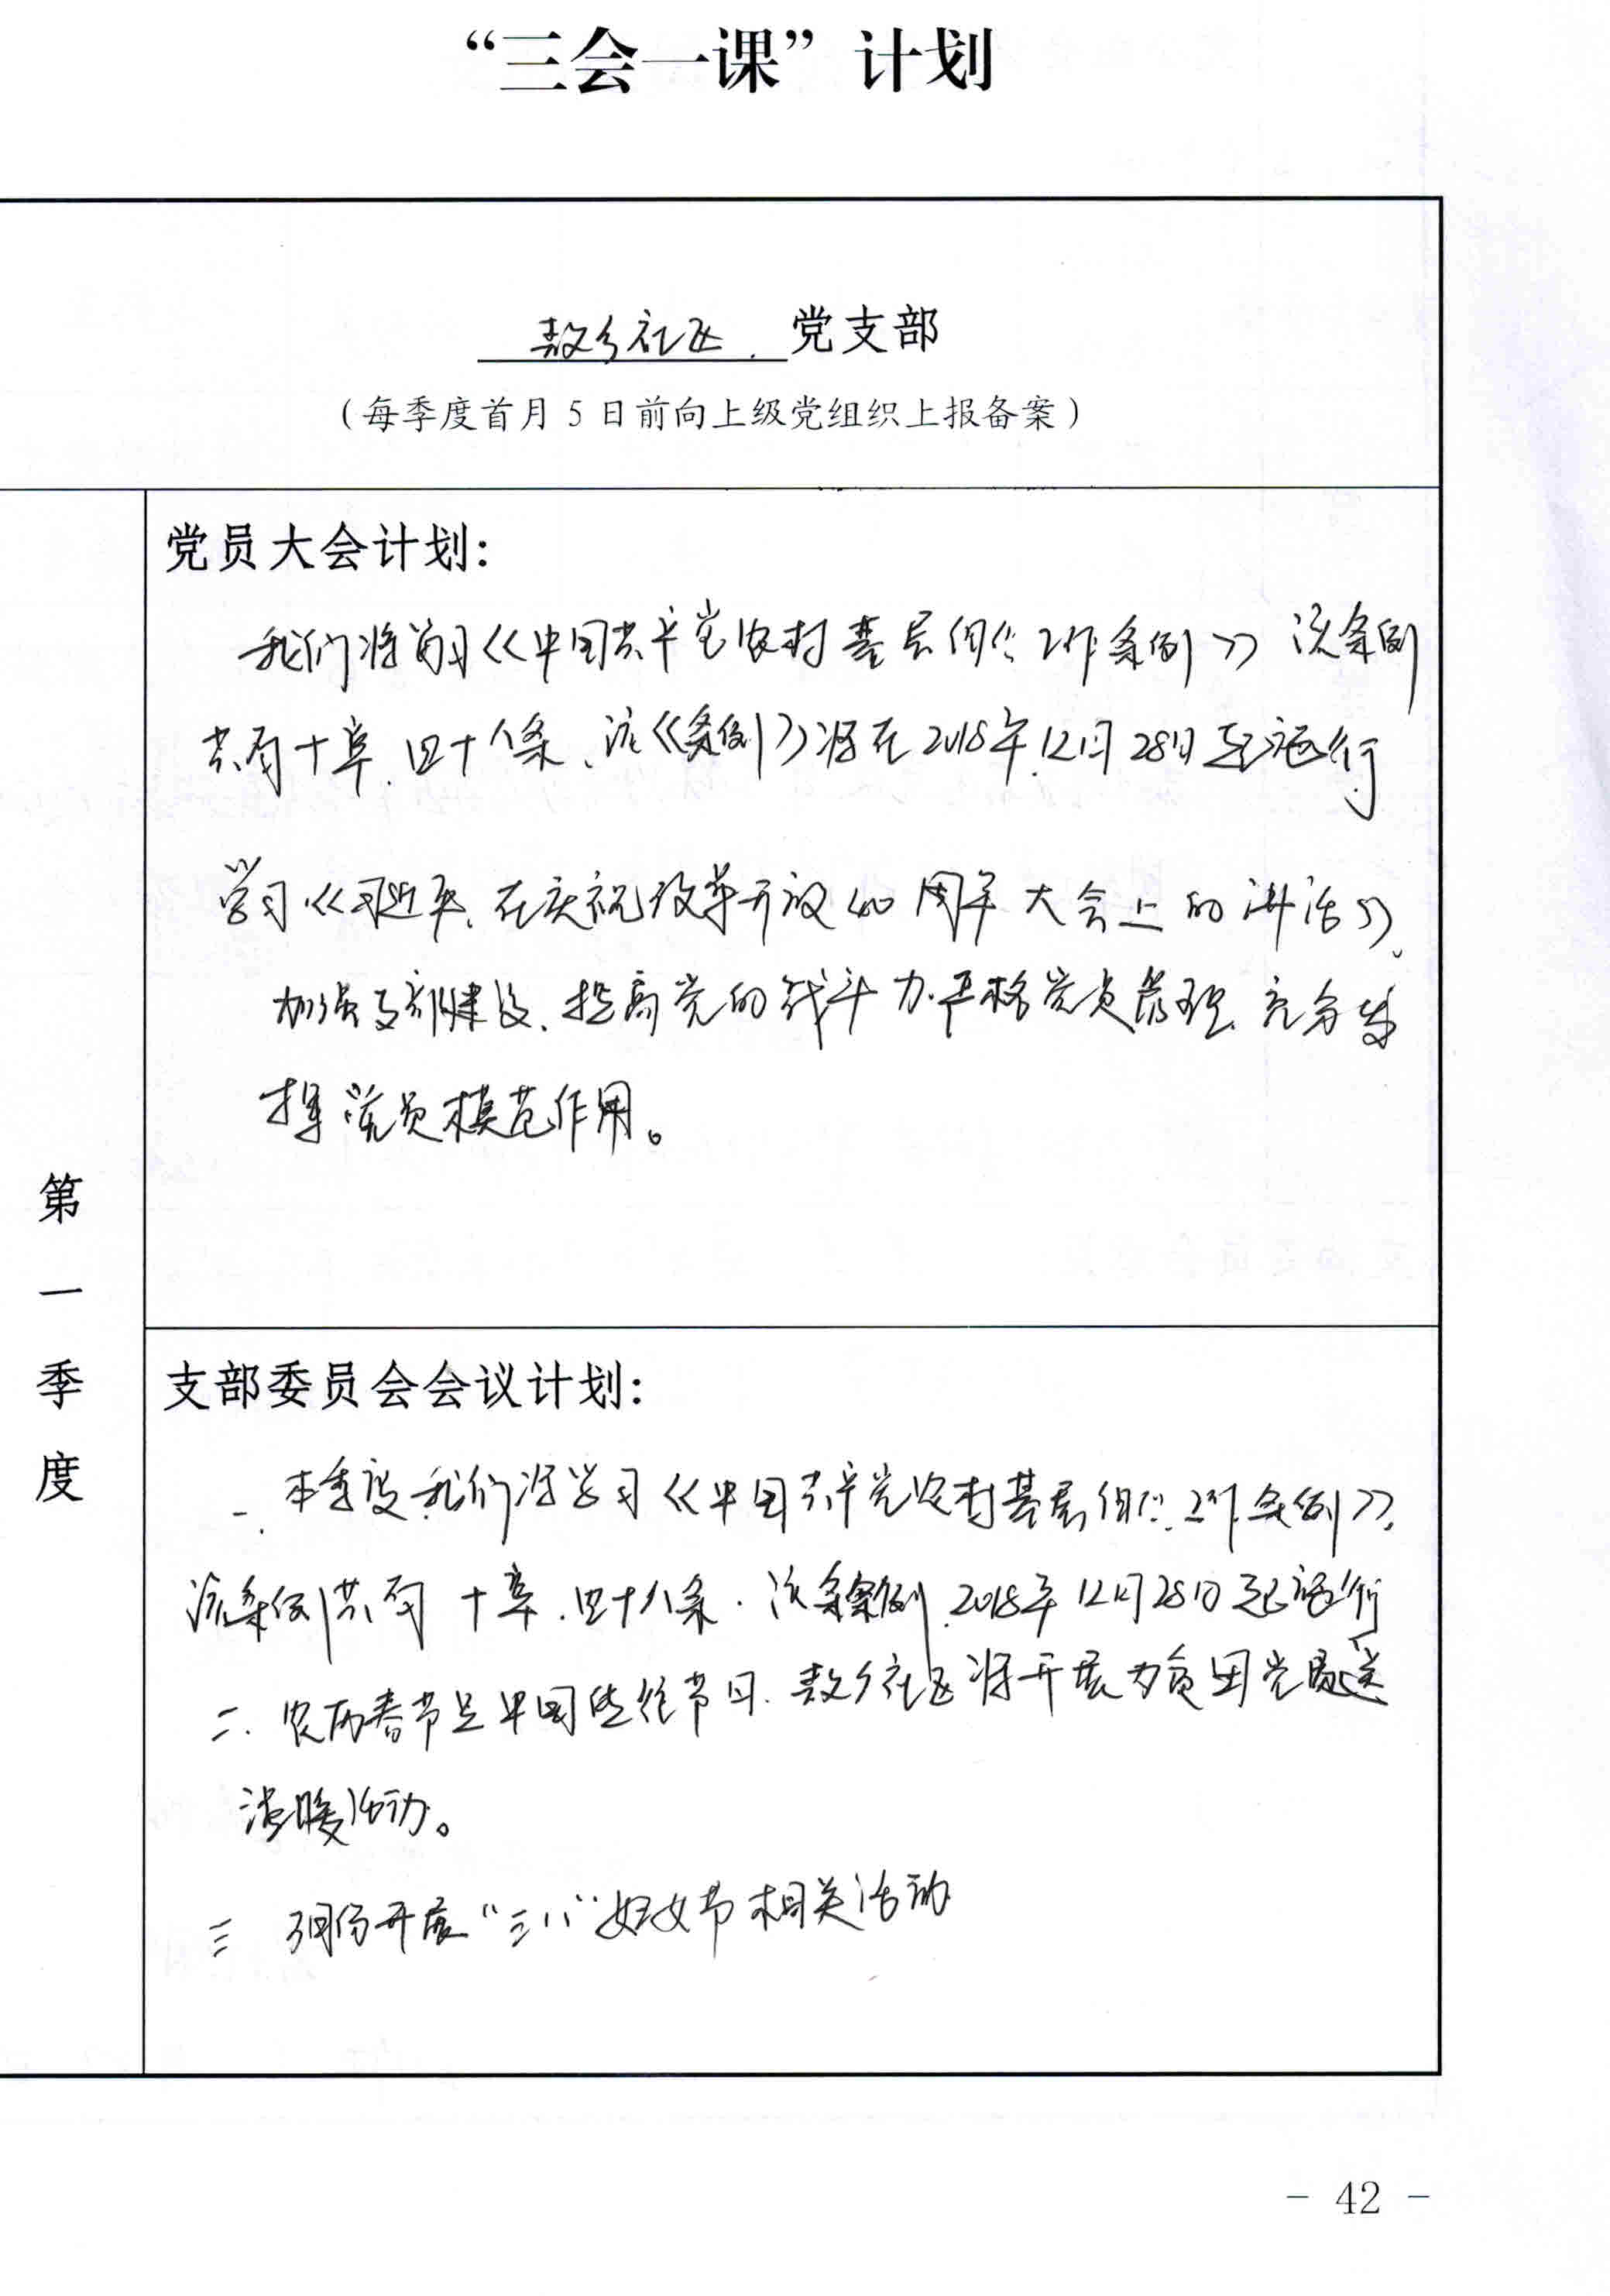 “三会一课”计划
敖乡社区 党支部
（每季度首月 5 日前向上级党组织上报备案）
党员大会计划：
我们将学习《中国共产党农村基层组织工作条例》该条例
共有十章、四十八条、该《条例》将在2018年12月28日起施行
学习《习近平、在庆祝改革开放40周年大会上的讲话》、
加强支部建设、提高党的战斗力.严格党员管理、充分发
挥党员模范作用。
第一季度
支部委员会会议计划：
一、本季度我们将学习《中国共产党农村基层组织工作条例》，
该条例共有十章、四十八条.该条例 2018年12月28日起施行
二、农历春节是中国传统节日、敖乡社区将开展为贫困党员送
温暖活动。
三 3月份开展“三八”妇女节相关活动
- 42 -